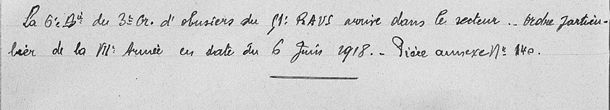 La 6e Bie du 3e Gr. d'obusiers du 91e RAVS arrive dans le secteur.. Ordre particu-
lier de la VIIe Armée en date du 6 Juin 1918. - Pièce annexe No 140.